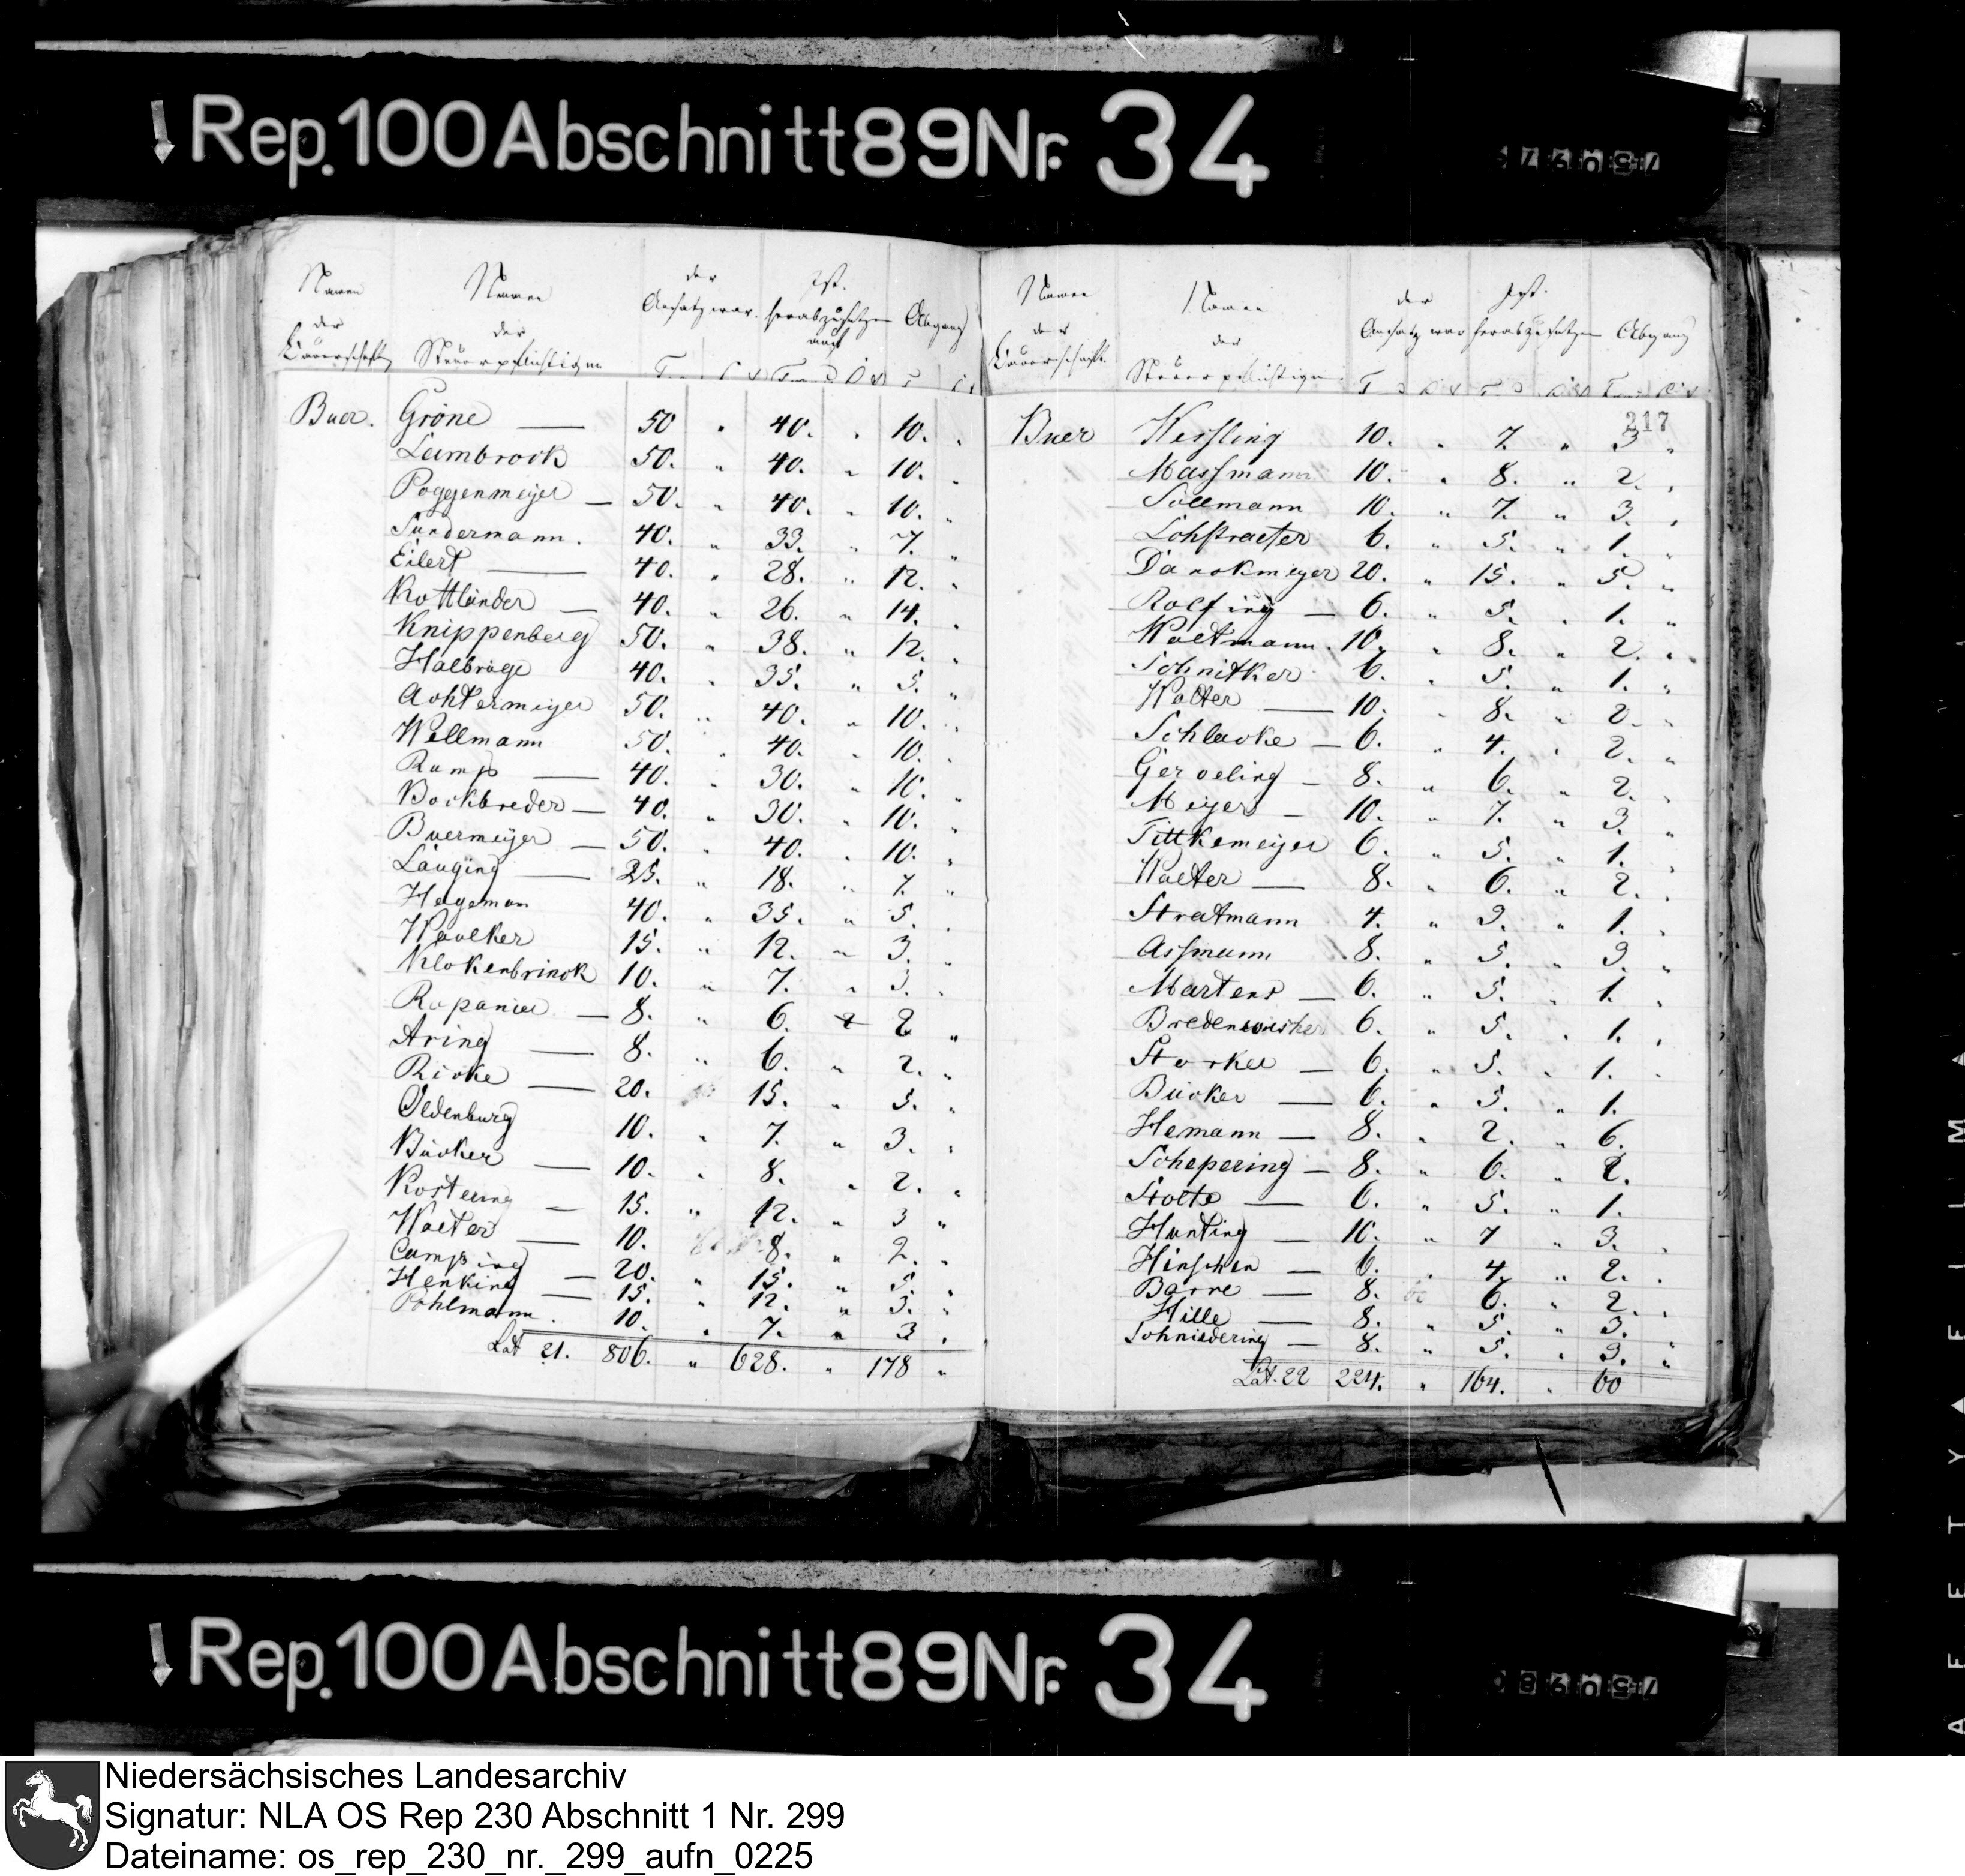 Rep. 100 Abschnitt 89 Nr. 34
Namen der Bauerschaften Namen der Steuerpflichtigen der Ansatz war. ist herabzusetzen auf Abgang
Buer. Gröne — 50 " 40. " 10. "
Leimbrock 50. " 40. " 10. "
Poggenmeyer — 50. " 40. " 10. "
Sundermann. 40. " 33. " 7. "
Eilert — 40. " 28. " 12. "
Kottländer — 40. " 26. " 14. "
Knippenberg 50. " 38. " 12. "
Halbrüge 40. " 35. " 5. "
Achtermeyer 50. " 40. " 10. "
Wellmann 50. " 40. " 10. "
Rump — 40. " 30. " 10. "
Bockbreder — 40. " 30. " 10. "
Buermeyer — 50. " 40. " 10. "
— 25. " 18. " 7. "
Hegeman 40. " 35. " 5. "
15. " 12. " 3. "
Klokenbrinck 10. " 7. " 3. "
— 8. " 6. 2 "
Aring — 8. " 6. " 2. "
Ricke — 20. 15. " 5. "
Oldenburg 10. " 7. " 3. "
Bücker — 10. " 8. " 2. "
— 15. " 12. " 3 "
Walter — 10. 8. " 2. "
Camping — 20. " 15. " 5. "
Henking — 15. " 12. " 3. "
Pöhlmann. 10. " 7. " 3. "
Lat 21. 806. " 628. " 178 "
Namen der Bauerschaft. Namen der Steuerpflichtigen der Ansatz war ist herabzusetzen Abgang
217
Buer Kessling 10. " 7. " 3 "
Massmann 10. " 8. " 2. "
Söllmann 10. " 7. " 3. "
Lohstraeter 6. " 5. " 1. "
Danckmeyer 20. " 15. " 5. "
Rolfing — 6. " 5. " 1. "
Woltmann. 10. " 8. " 2. "
Schnitker 6. " 5. " 1. "
Walter — 10. " 8. " 2. "
Schlacke — 6. " 4. " 2. "
Gerveling — 8. " 6. " 2. "
Meyer — 10. " 7. " 3. "
Tittkemeyer 6. " 5. " 1. "
Walter — 8. " 6. " 2. "
Stratmann 4. " 3. " 1. "
Assmann 8. " 5. " 3. "
Martens — 6. " 5. " 1. "
6. " 5. " 1. "
— 6. " 5. " 1. "
Bücker — 6. " 5. " 1.
Hemann — 8. " 2. " 6.
Schepering — 8. " 6. " 2.
Stolte — 6. " 5. " 1.
Hunting — 10. " 7 " 3. "
Hinschen — 6. " 4. " 2. "
Barre — 8. 6. " 2. "
Hille — 8. " 5. " 3. "
Schniedering — 8. " 5. " 3. "
Lat. 22 224. " 164. " 60
Rep. 100 Abschnitt 89 Nr. 34
Niedersächsisches Landesarchiv
Signatur: NLA OS Rep 230 Abschnitt 1 Nr. 299
Dateiname: os_rep_230_nr._299_aufn_0225